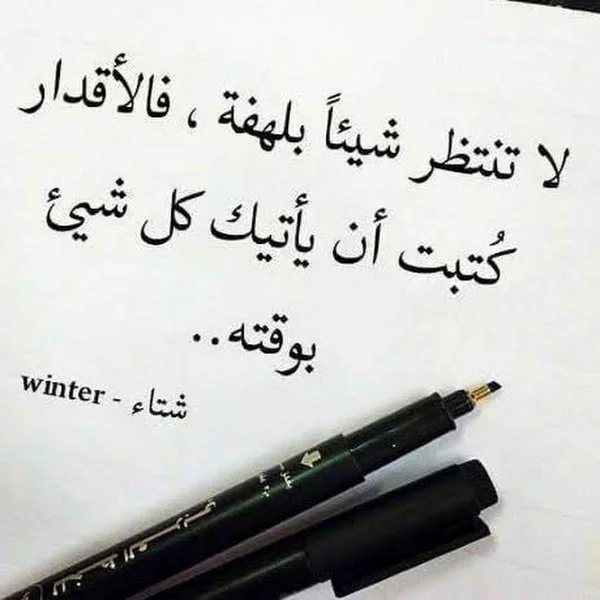 لا تنتظر شيئاً بلهفة ، فالأقدار
كُتبت أن يأتيك كل شيئ
بوقته..
شتاء - winter